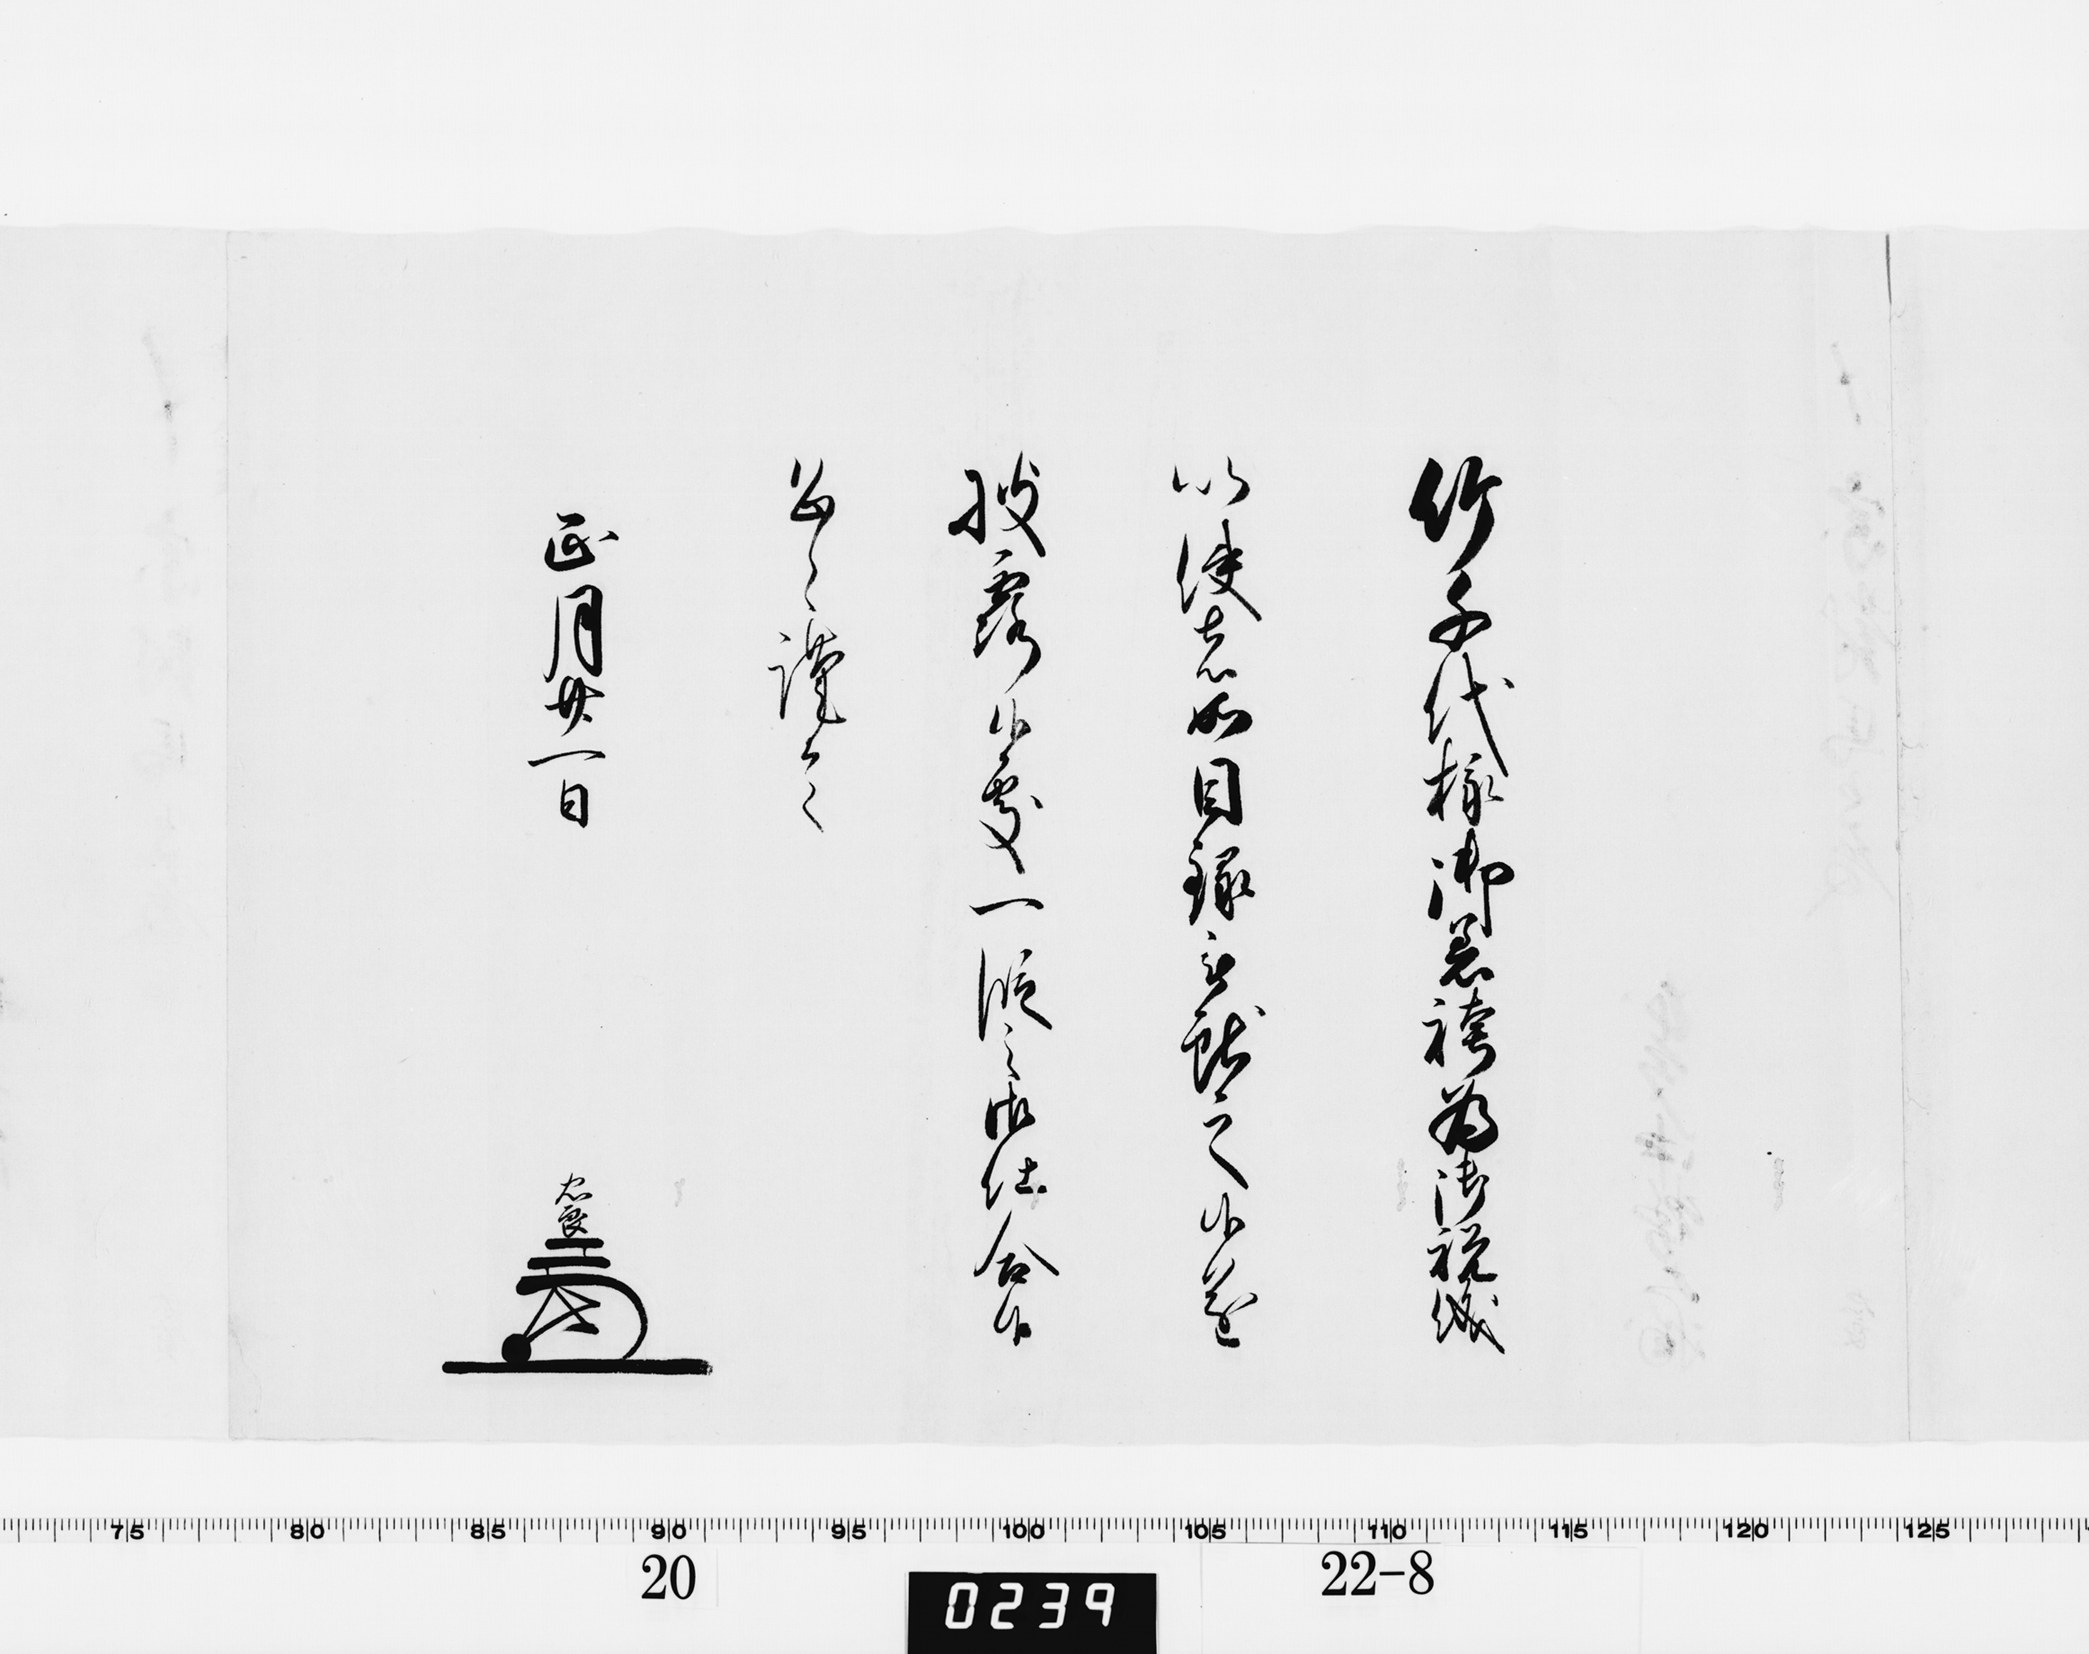 竹千代様御着袴為御祝儀
以使者如目録被献之候遂
披露候處一段之御仕合候
恐々謹言
正月廿一日
忠良
75 80 85 90 95 100 105 110 115 120 125
20
0239
22-8